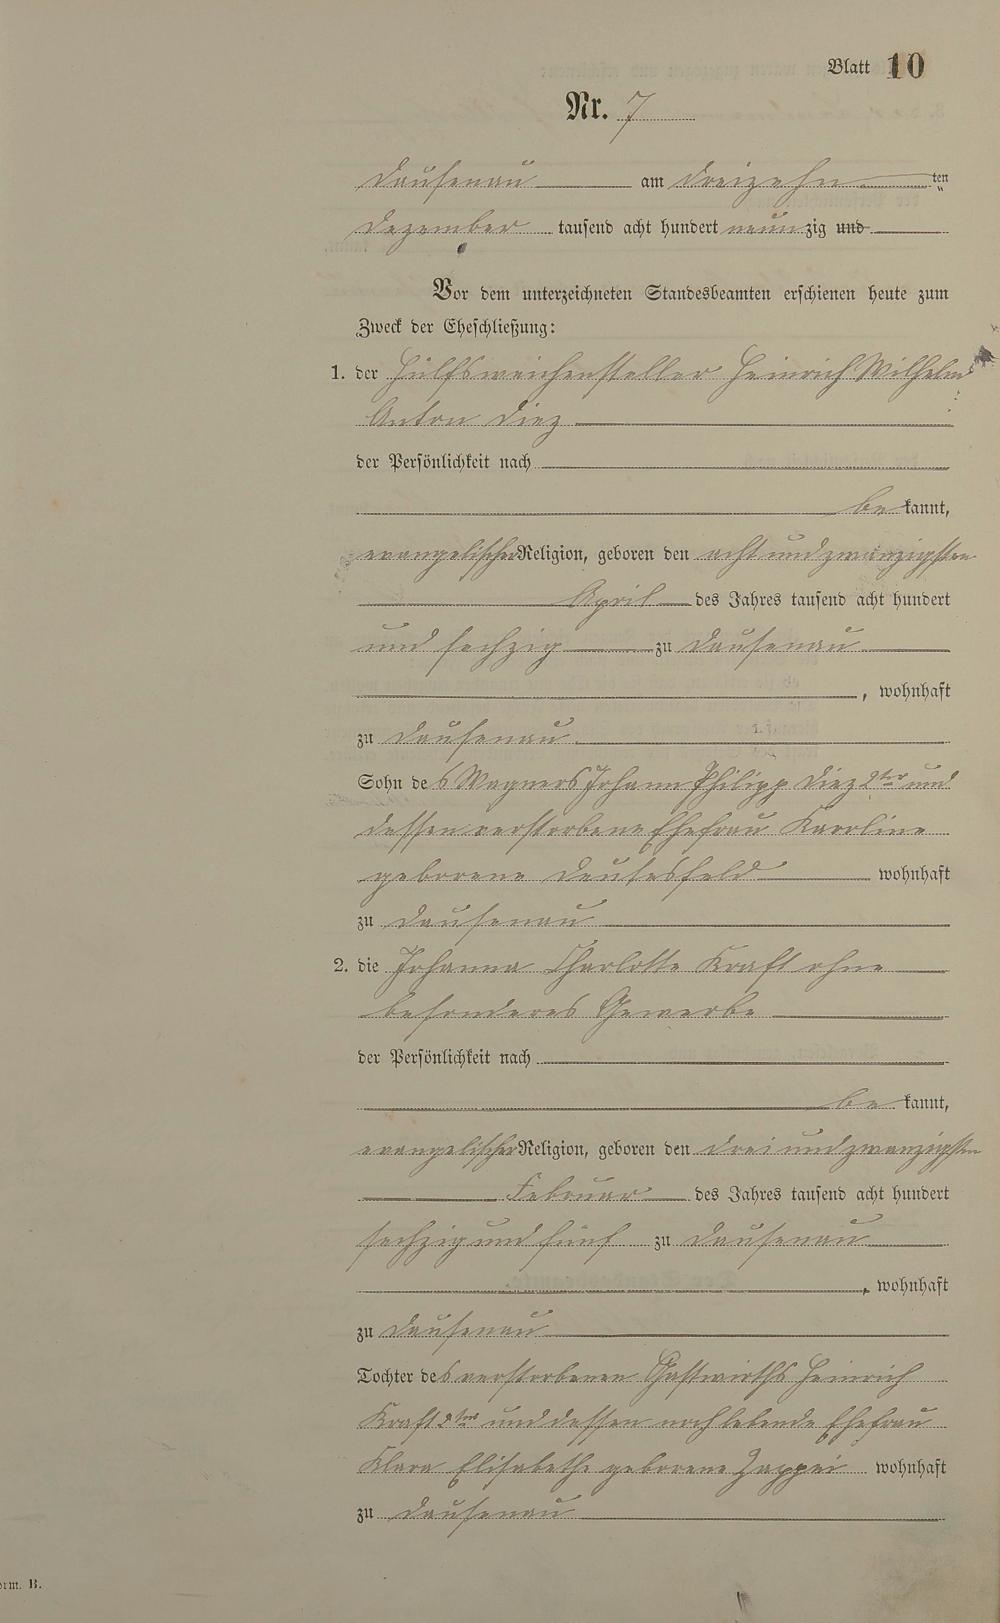 Blatt 10
Nr. 7
Dausenau am dreizehn ten
Dezember tausend acht hundert neunzig und
Vor dem unterzeichneten Standesbeamten erschienen heute zum
Zweck der Eheschließung:
1. der Hülfsweichensteller Heinrich Wilhelm
Anton Diez
der Persönlichkeit nach
be kannt,
evangelischer Religion, geboren den acht und zwanzigsten
April des Jahres tausend acht hundert
und sechzig zu Dausenau
, wohnhaft
zu Dausenau
Sohn des Wagners Johann Philipp Diez 2ter und
dessen verstorbene Ehefrau Karoline
geborene wohnhaft
zu Dausenau
2. die Johanna Charlotte Kraft ohne
besonderes Gewerbe
der Persönlichkeit nach
be kannt,
evangelischer Religion, geboren den drei und zwanzigsten
Februar des Jahres tausend acht hundert
sechzig und fünf zu Dausenau
, wohnhaft
zu Dausenau
Tochter des verstorbenen Gastwirths Heinrich
Kraft 2ter und dessen noch lebende Ehefrau
Klara Elisabethe geborene wohnhaft
zu Dausenau
orm. B.